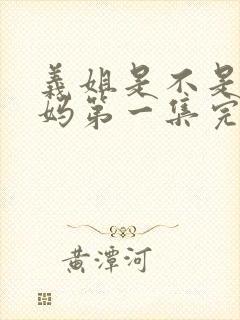 義姐是不是
妈第一集完
黄潭河